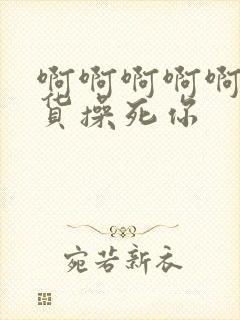 啊啊啊啊啊
货操死你
宛若新衣